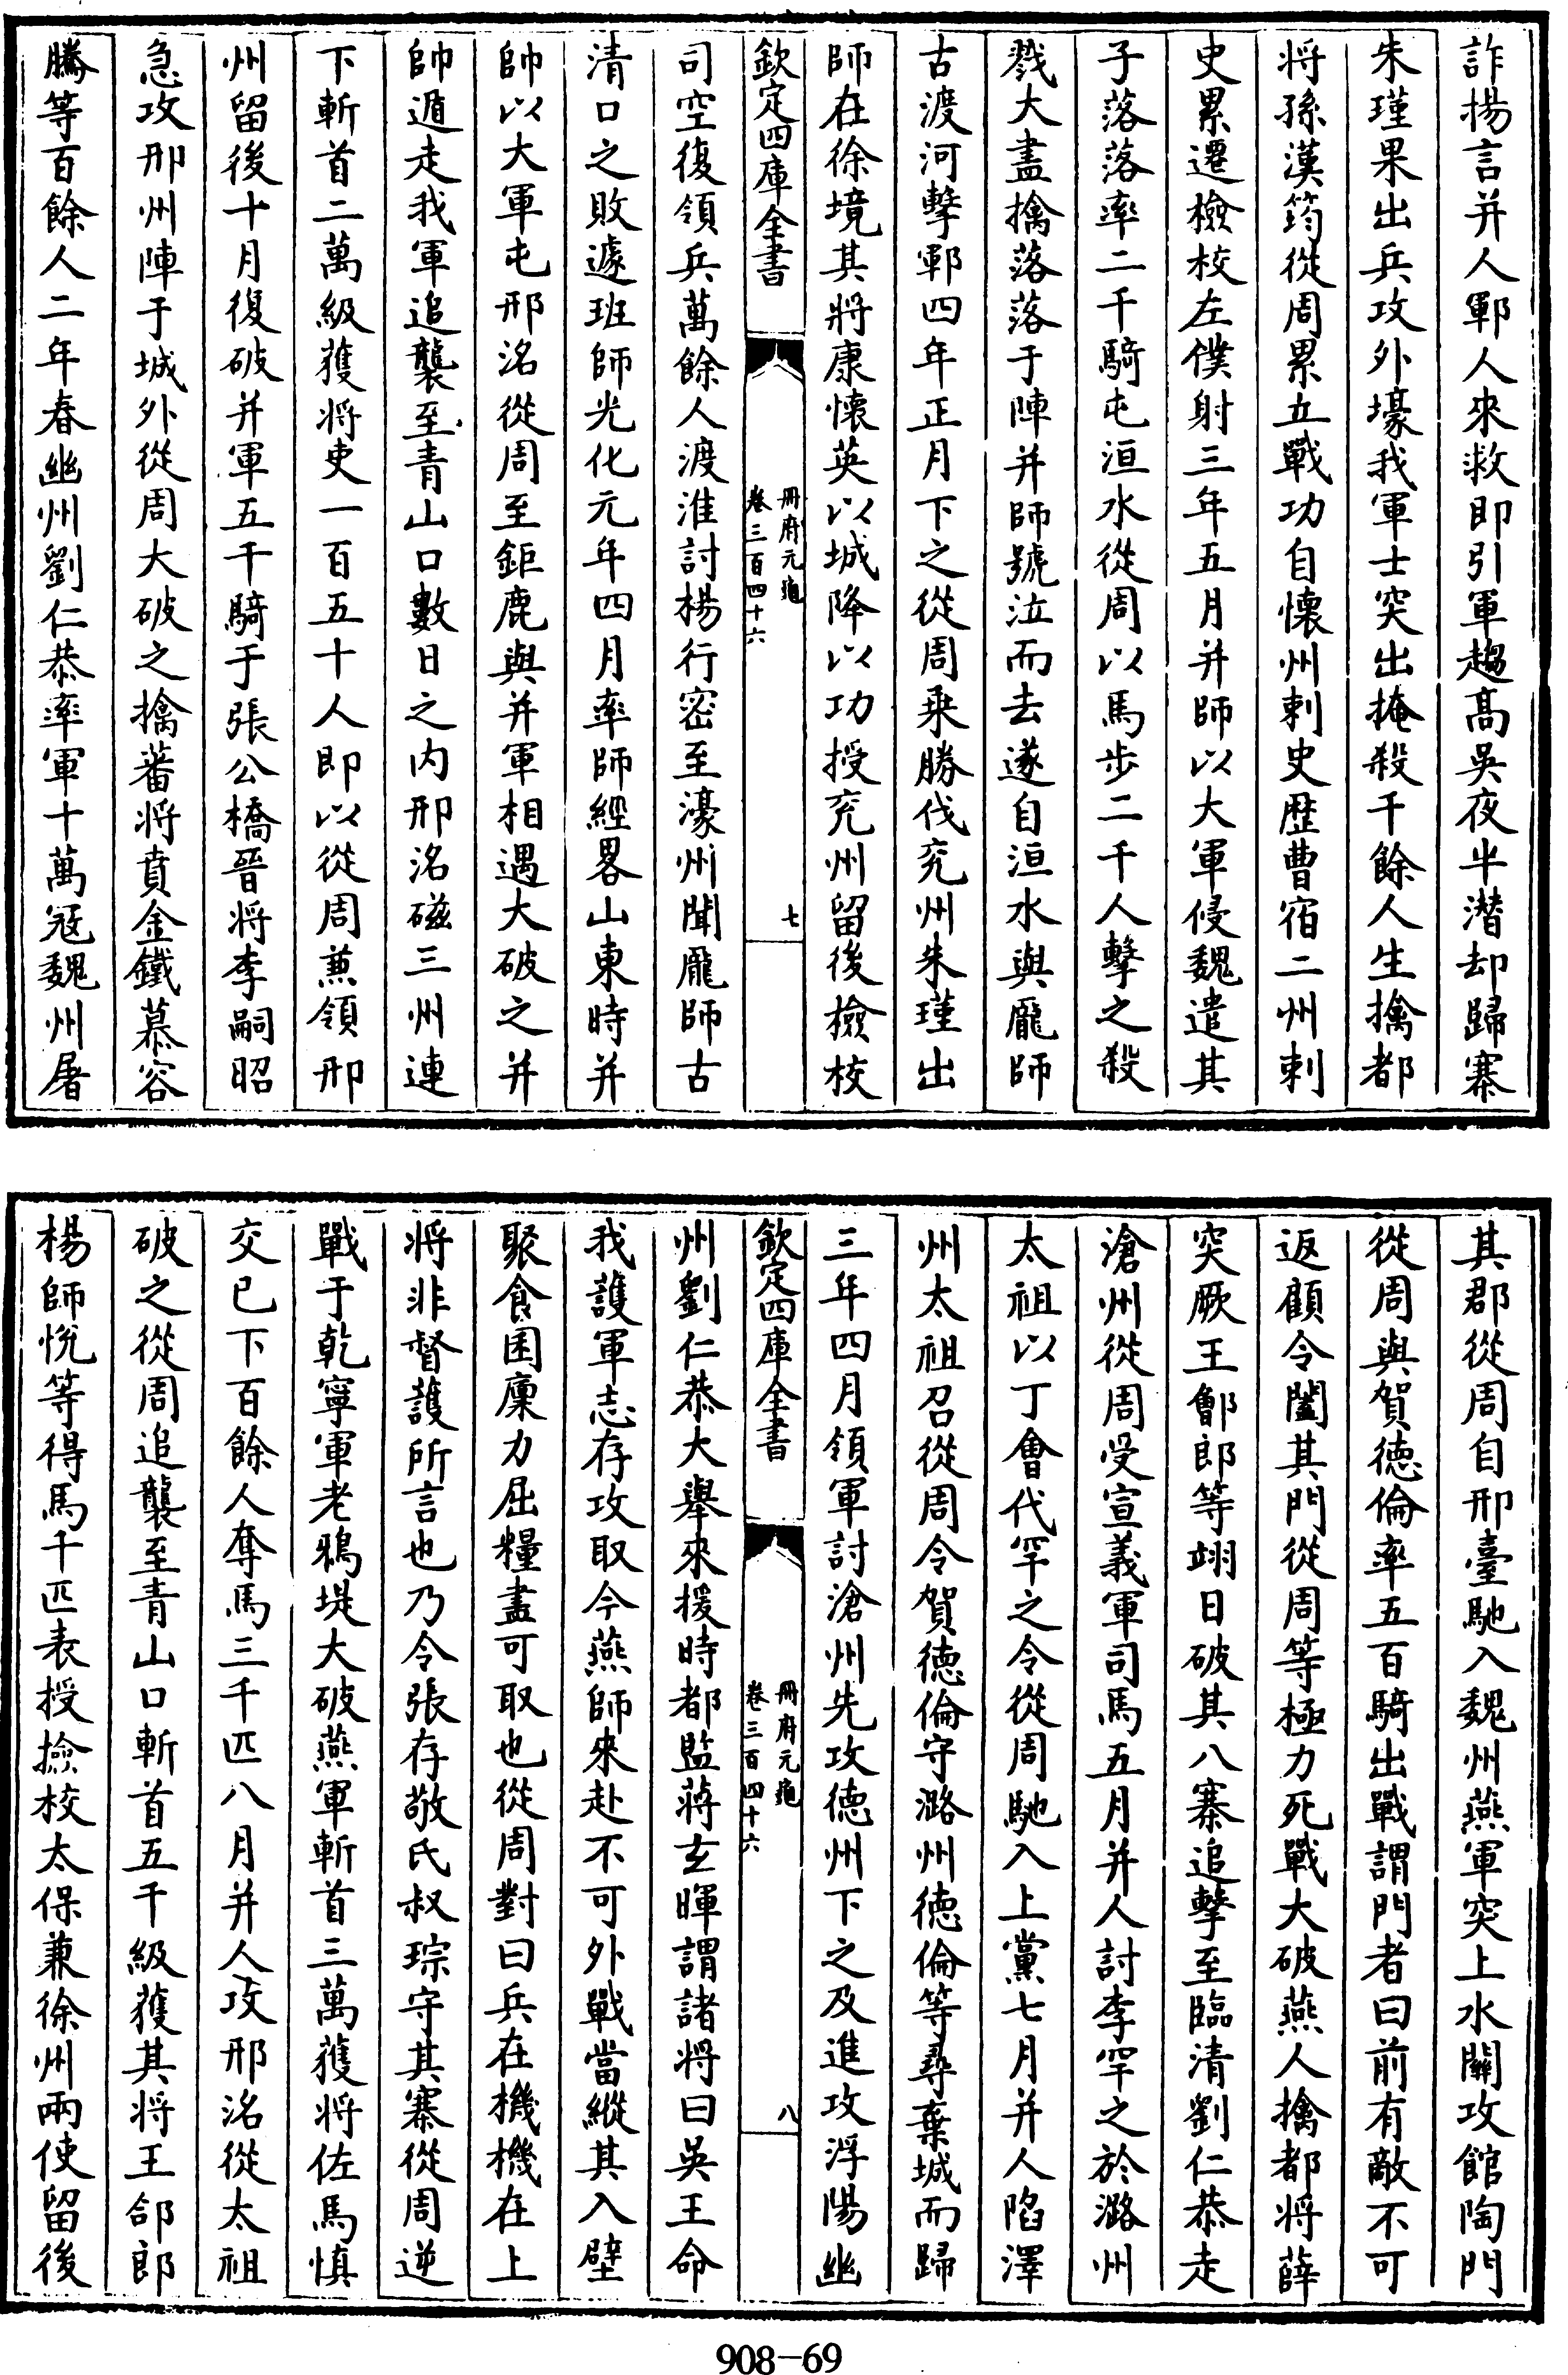 詐揚言并人鄆人來救即引軍趨髙吳夜半潛却歸寨
朱瑾果出兵攻外壕我軍士突出掩殺千餘人生擒都
将孫漢筠從周累立戰功自懷州刺史歴曹宿二州刺
史累遷檢校左僕射三年五月并師以大軍侵魏遣其
子落落率二千騎屯洹水從周以馬步二千人擊之殺
戮大盡擒落落于陣并師號泣而去遂自洹水與龐師
古渡河擊鄆四年正月下之從周乗勝伐兖州朱瑾出
師在徐境其將康懷英以城降以功授兖州留後檢校
欽定四庫全書
冊府元龜
卷三百四十六
七
司空復領兵萬餘人渡淮討楊行密至濠州聞龐師古
清口之敗遽班師光化元年四月率師經畧山東時并
帥以大軍屯邢洺從周至鉅鹿與并軍相遇大破之并
帥遁走我軍追襲至青山口數日之内邢洺磁三州連
下斬首二萬級獲将吏一百五十人即以從周兼領邢
州留後十月復破并軍五千騎于張公橋晉将李嗣昭
急攻邢州陣于城外從周大破之擒蕃将賁金鐵慕容
騰等百餘人二年春幽州劉仁恭率軍十萬冦魏州屠
其郡從周自邢臺馳入魏州燕軍突上水關攻館陶門
從周與賀徳倫率五百騎出戰謂門者曰前有敵不可
返顧令闔其門從周等極力死戰大破燕人擒都将薛
突厥王鄶郎等翊日破其八寨追擊至臨清劉仁恭走
滄州從周受宣義軍司馬五月并人討李罕之於潞州
太祖以丁會代罕之令從周馳入上黨七月并人陷澤
州太祖召從周令賀徳倫守潞州徳倫等尋棄城而歸
三年四月領軍討滄州先攻徳州下之及進攻浮陽幽
欽定四庫全書
冊府元龜
卷三百四十六
八
州劉仁恭大舉來援時都監蔣玄暉謂諸将曰吳王命
我護軍志存攻取今燕師來赴不可外戰當縱其入壁
聚食囷廩力屈糧盡可取也從周對曰兵在機機在上
将非督護所言也乃令張存敬氏叔琮守其寨從周逆
戰于乾寧軍老鵶堤大破燕軍斬首三萬獲將佐馬慎
交已下百餘人奪馬三千匹八月并人攻邢洺從太祖
破之從周追襲至青山口斬首五千級獲其将王郃郎
楊師悅等得馬千匹表授檢校太保兼徐州兩使留後
908-69